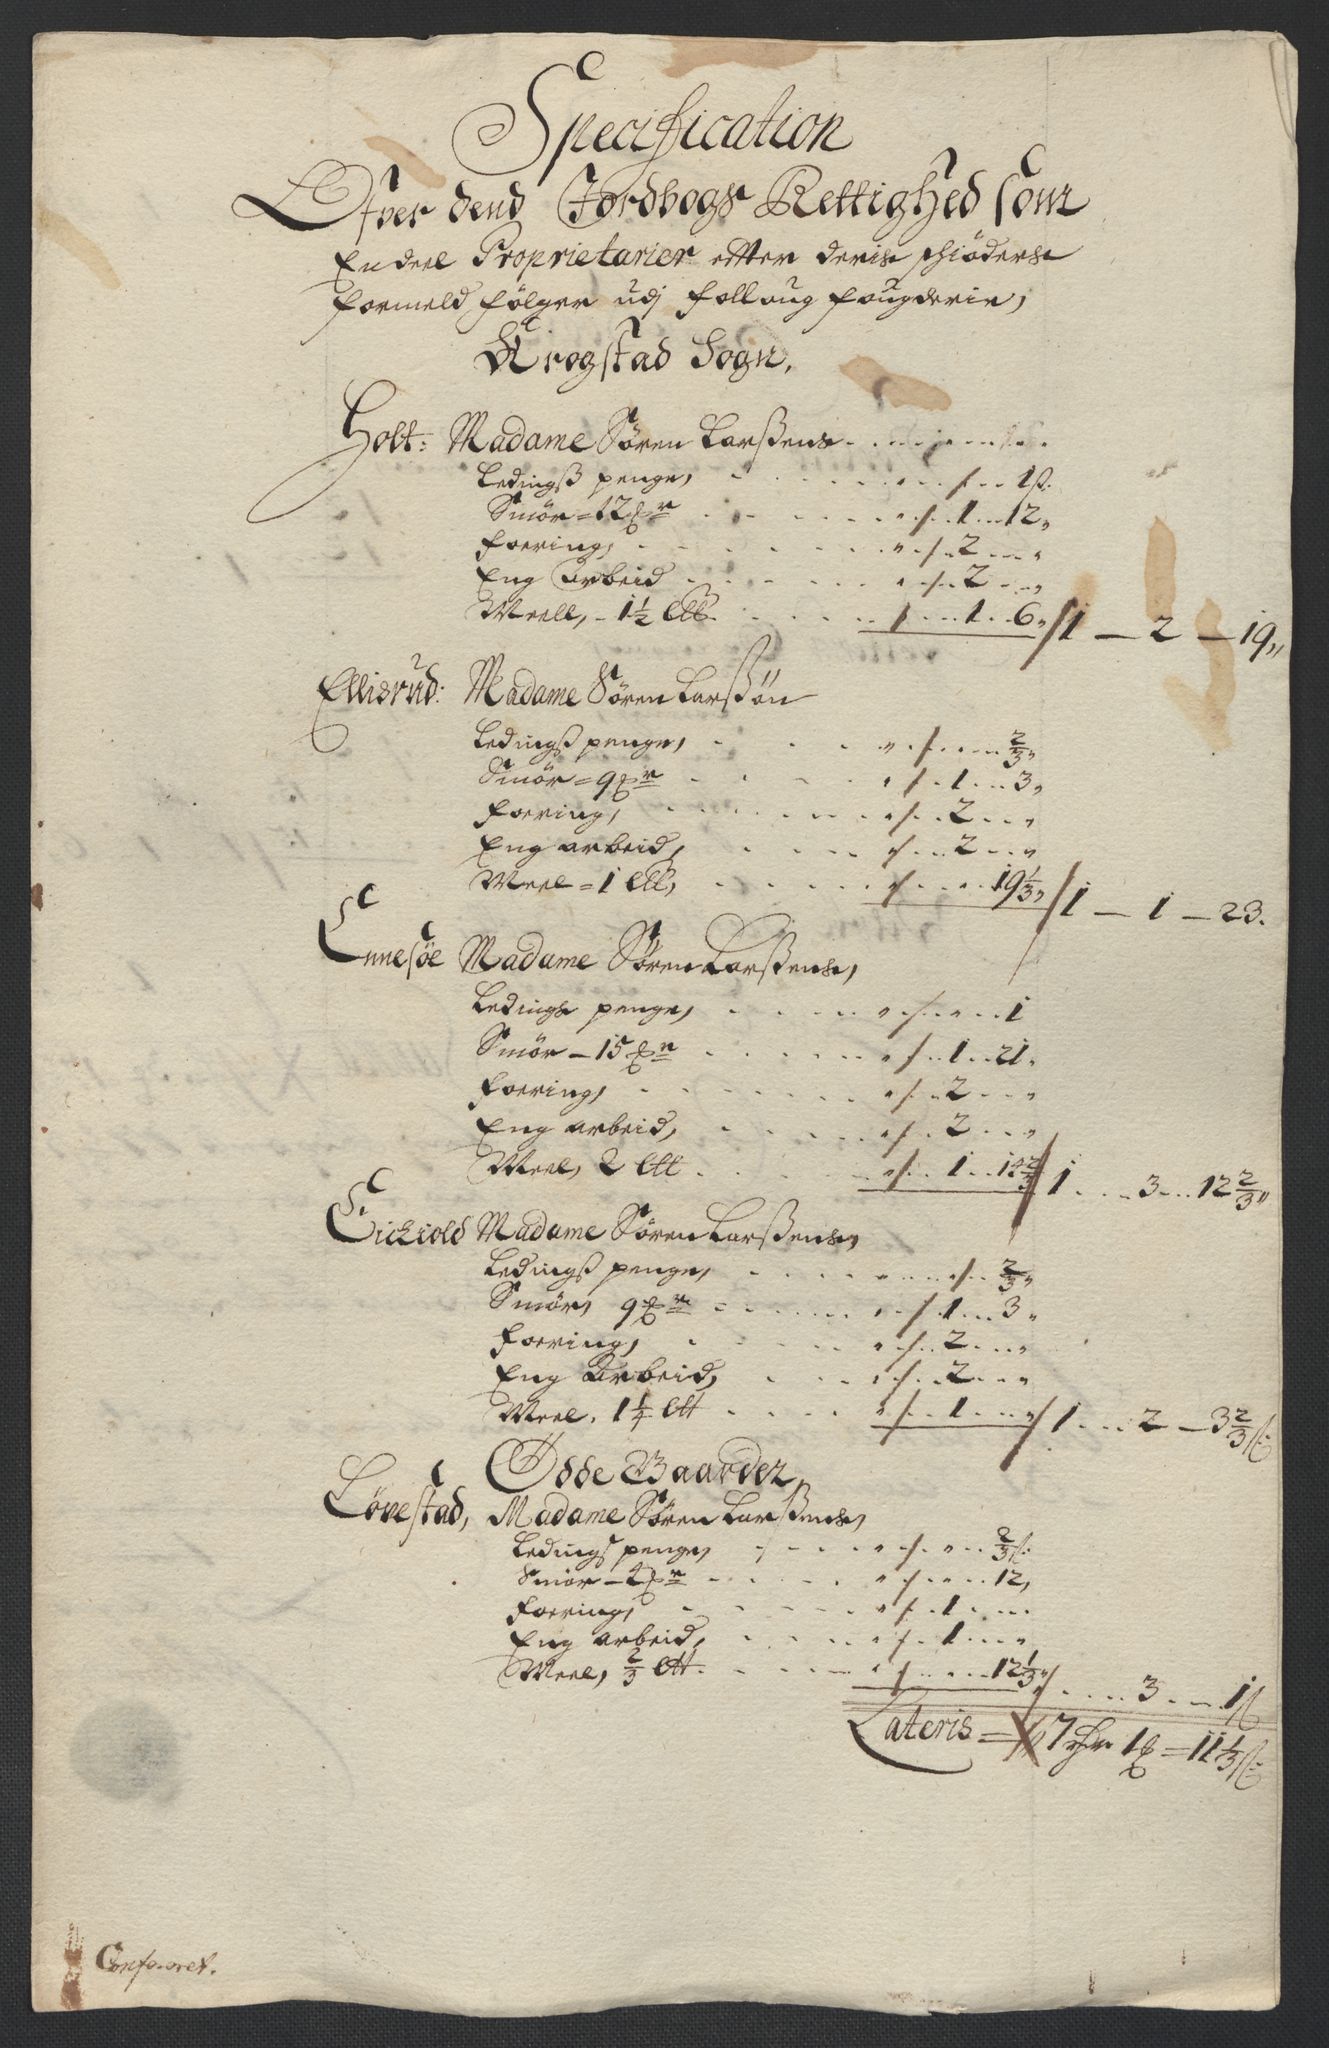 Specification
Ofver dend Jordbogs Rettighed som
En deel Proprietarier efter deris schiöders
formeld følger udj follaug fougderie,
Krogstad Sogn.
Holt: Madame Søren Larßens
Ledingß penge, 1 ß.
Smör = 12 1 12
foering, 2
Eng Arbeid 2
Meell, - 1½ 1 6 / 1 — 2 — 19
Ellisrud: Madame Søren Larßøn
Ledingß penge, ⅔
Smör = 9 1 3
foering, 2
Eng arbeid, 2
Meel = 1 19⅓ / 1 — 1 — 23.
Ennesøe Madame Søren Larßens,
Ledings penge, 1
Smör — 15 1 21
foering, 2
Eng arbeid, 2
Meel, 2 1 / 1 3 12⅔
Eickiold Madame Søren Larßens,
Ledingß penge, ⅔
Smör, 9 1 3
foering, 2
Eng Arbeid, 2
Meel, 1¼ 1 / 1 2 — 3⅔ ß
Ödde Gaarder,
Løvestad, Madame Søren Larßens,
Ledings penge, ⅔ ß
Smör — 12
foering, 1
Eng arbeid, 1
Meel, ⅔ 12⅓ / 3 1 ß
Lateris = 7 1 = 11⅓ ß
Confereret.